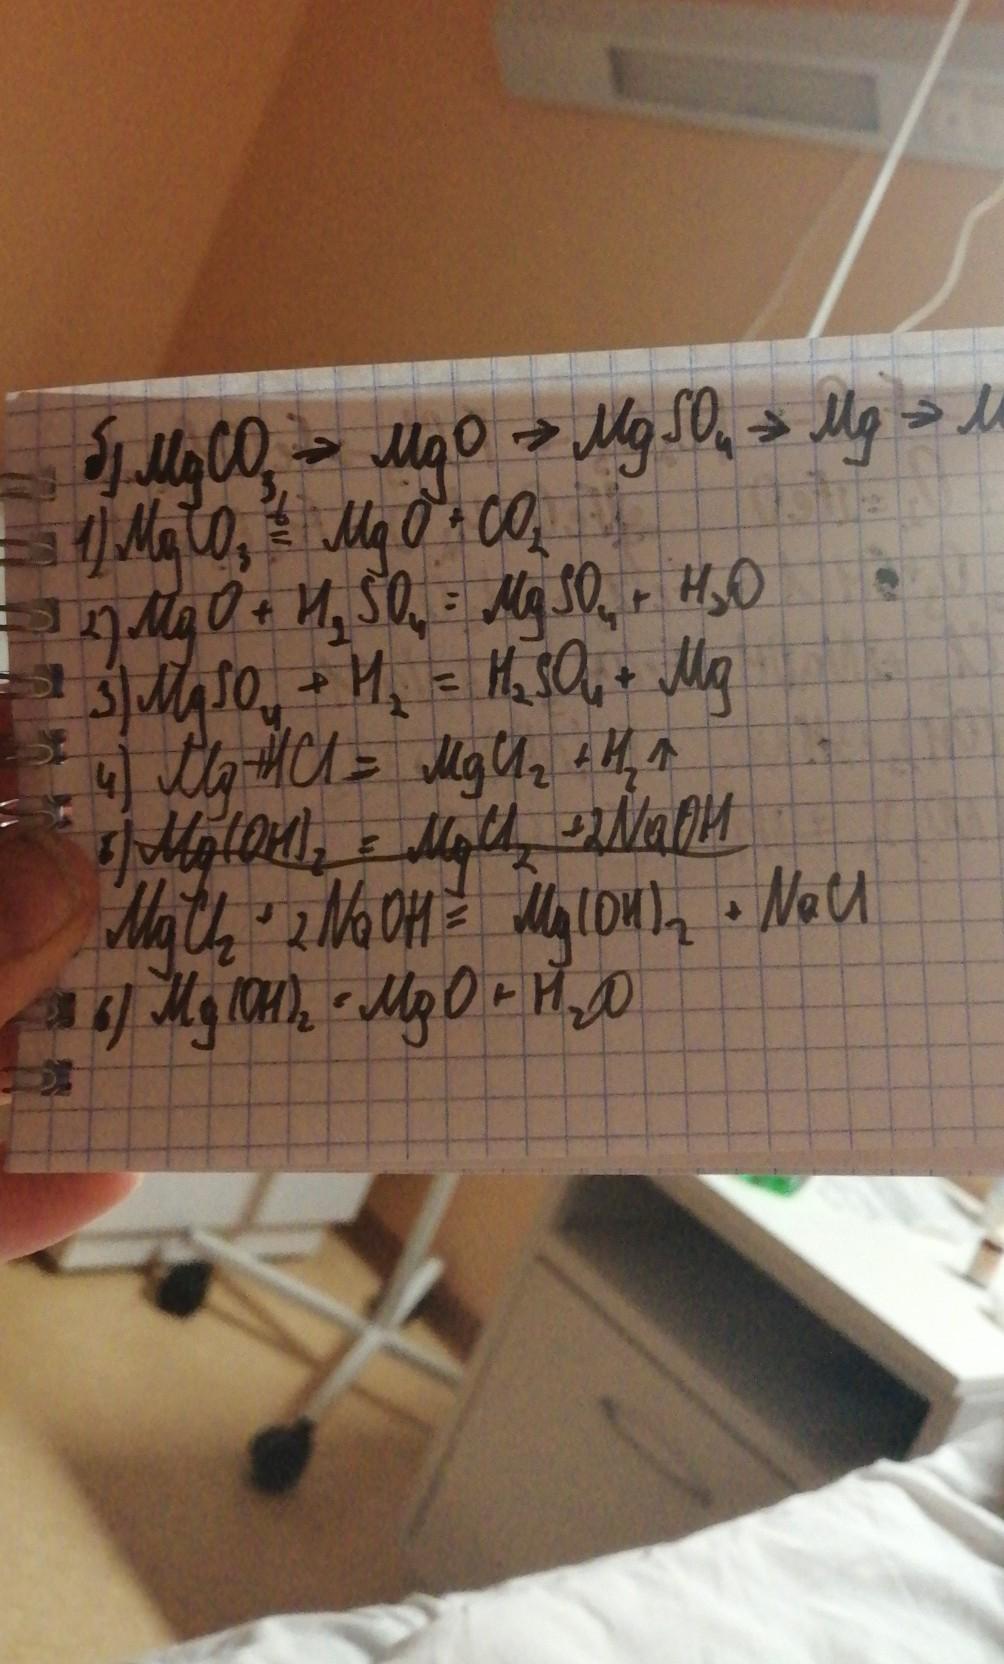 б) MgCO₃ → MgO → MgSO₄ → Mg → M
1) MgCO₃ =ᵗ MgO + CO₂
2) MgO + H₂SO₄ = MgSO₄ + H₂O
3) MgSO₄ + H₂ = H₂SO₄ + Mg
4) Mg + HCl = MgCl₂ + H₂↑
5) Mg(OH)₂ = MgCl₂ + 2NaOH
MgCl₂ + 2NaOH = Mg(OH)₂ + NaCl
6) Mg(OH)₂ = MgO + H₂O